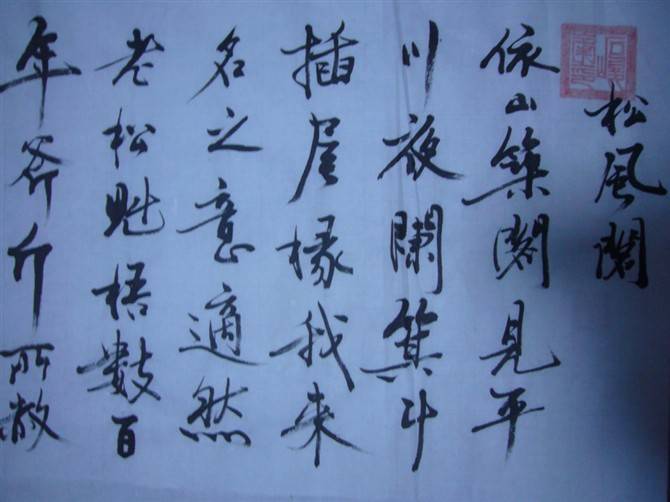 松風閣
依山築閣見平
川夜闌箕斗
插屋椽我來
名之意適然
老松魁梧數百
年斧斤所赦